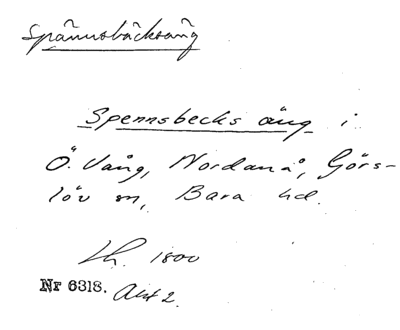 Spännsbäcksäng
Spennsbecks äng i
Ö. Vång, Nordanå, Görs-
löv sn, Bara hd.
Lh. 1800
Nr 6318. Akt 2.